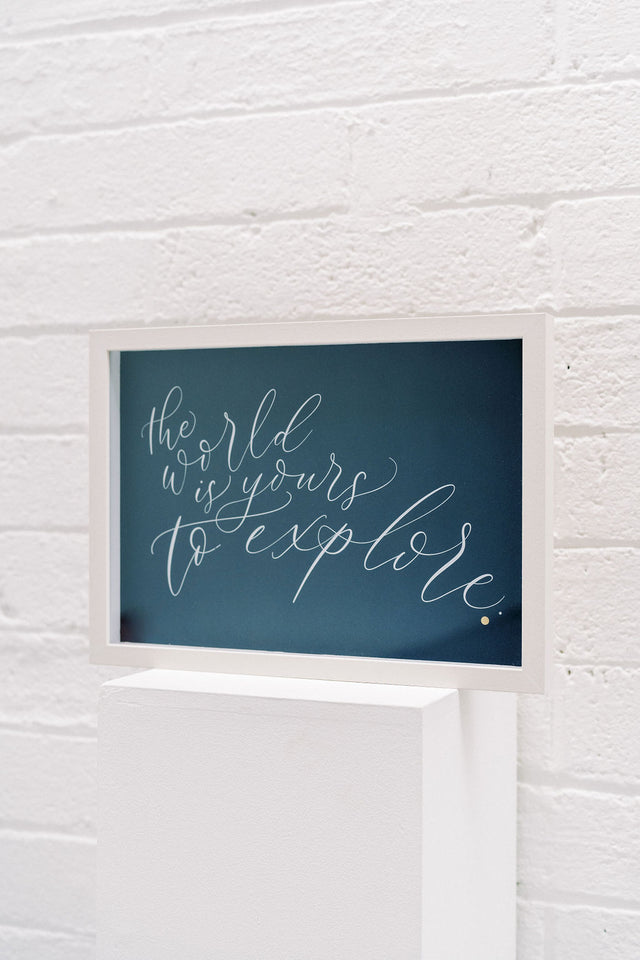 the world
is yours
to explore.